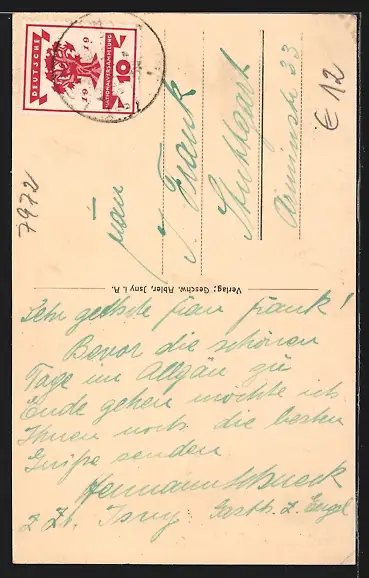 DEUTSCHE
NATIONALVERSAMMLUNG
1919
10
€ 12
7972
Frau
J. Frank
Stuttgart
Verlag: Geschw. Abler, Jsny i. A.
Sehr geehrte Frau Frank!
Bevor die schönen
Tage im Allgäu zu
Ende gehen möchte ich
Ihnen noch die besten
Grüße senden.
Hermann
z. Zt. Isny Gasth. z. Engel